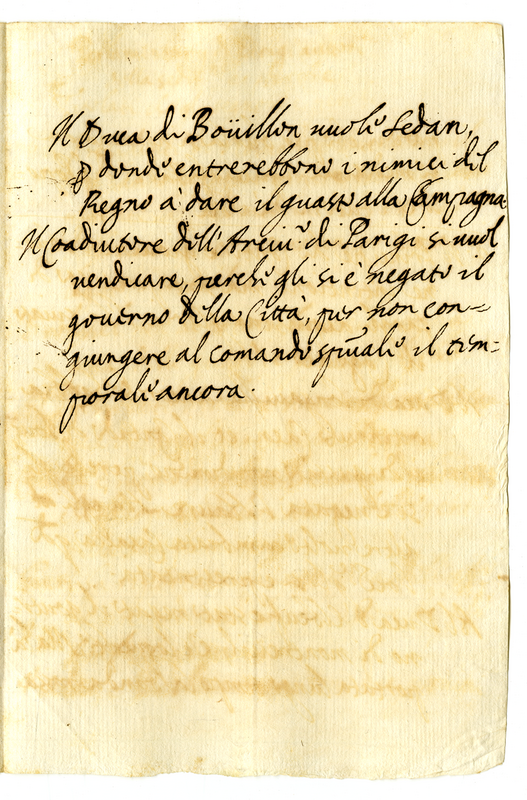 Il Duca di Boüillon uuole Sedan,
donde entrerebbono i nimici del
Regno à dare il guasto alla Campagna.
Il Coadiutore dell' Arciu.e di Parigi si uuol
uendicare, perche gli si è negato il
gouerno della Città, per non con=
giungere al comando sp̃uale il tem=
porale ancora.